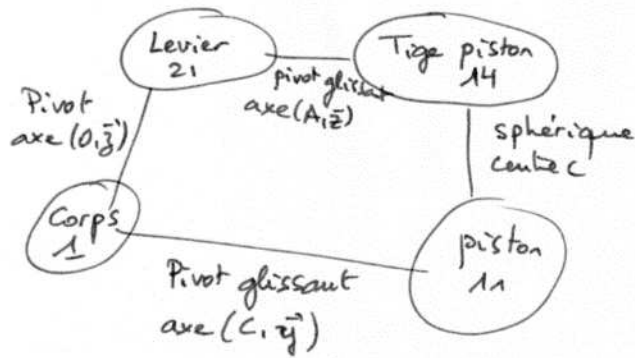 Levier
21
Tige piston
14
pivot glissant
axe (A, z⃗)
Pivot
axe (O, z⃗)
sphérique
centre C
Corps
1
piston
11
Pivot glissant
axe (C, y⃗)